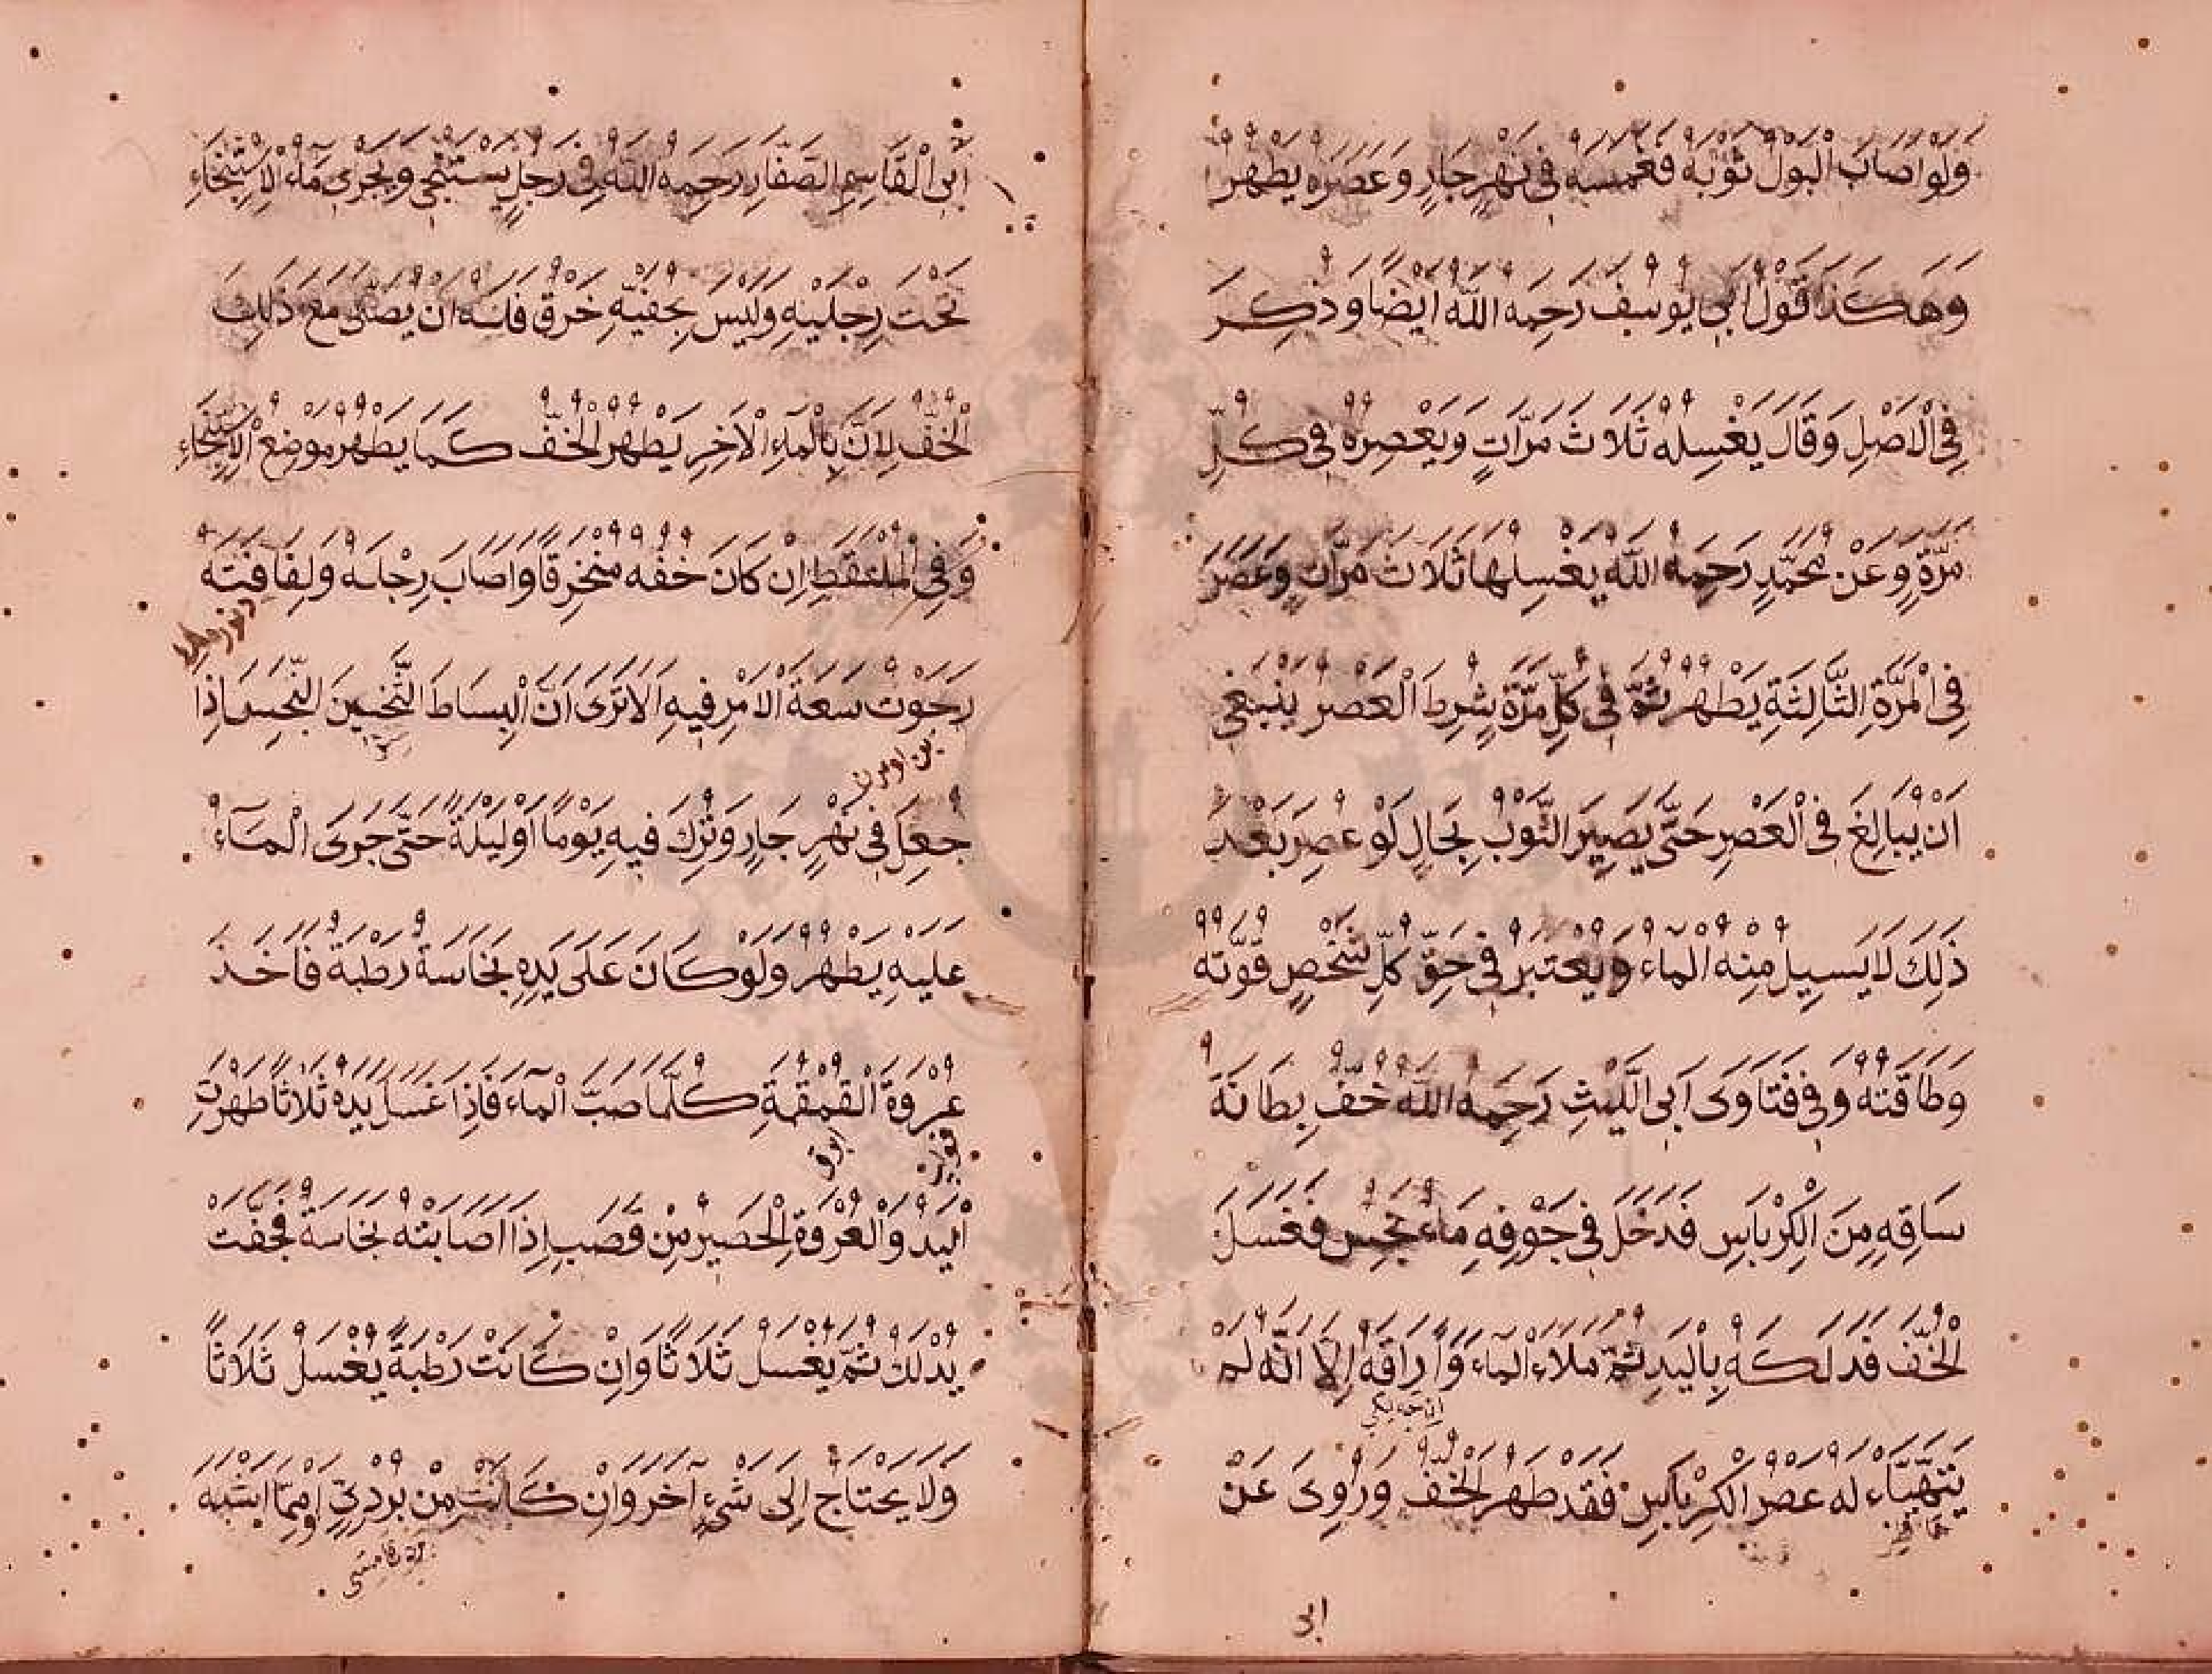 وَلَوْ اَصَابَ الْبَوْلُ ثَوْبَهُ فَغَمَسَهُ فِي نَهْرٍ جَارٍ وَعَصَرَهُ يَطْهُرُ
وَهٰكَذَا قَوْلُ اَبِي يُوسُفَ رَحِمَهُ اللّٰهُ اَيْضًا وَذُكِرَ
فِي الْاَصْلِ وَقَالَ يَغْسِلُهُ ثَلَاثَ مَرَّاتٍ وَيَعْصِرُهُ فِي كُلِّ
مَرَّةٍ وَعَنْ مُحَمَّدٍ رَحِمَهُ اللّٰهُ يَغْسِلُهَا ثَلَاثَ مَرَّاتٍ وَعَصَرَ
فِي الْمَرَّةِ الثَّالِثَةِ يَطْهُرُ ثُمَّ فِي كُلِّ مَرَّةٍ شُرِطَ الْعَصْرُ يَنْبَغِي
اَنْ يُبَالِغَ فِي الْعَصْرِ حَتَّى يَصِيرَ الثَّوْبُ بِحَالٍ لَوْ عُصِرَ بَعْدَ
ذٰلِكَ لَا يَسِيلُ مِنْهُ الْمَاءُ وَيُعْتَبَرُ فِي حَقِّ كُلِّ شَخْصٍ قُوَّتُهُ
وَطَاقَتُهُ وَفِي فَتَاوَى اَبِي اللَّيْثِ رَحِمَهُ اللّٰهُ خُفٌّ بِطَانَةُ
سَاقِهِ مِنَ الْكِرْبَاسِ فَدَخَلَ فِي جَوْفِهِ مَاءٌ نَجِسٌ فَغَسَلَ
الْخُفَّ فَدَلَكَهُ بِالْيَدِ ثُمَّ مَلَاءَ الْمَاءَ وَاَرَاقَهُ اِلَّا اَنَّهُ لَمْ
يَتَهَيَّاءْ لَهُ عَصْرُ الْكِرْبَاسِ فَقَدْ طَهُرَ الْخُفُّ وَرُوِيَ عَنْ
ابى
اَبِي الْقَاسِمِ الصَّفَّارِ رَحِمَهُ اللّٰهُ فِي رَجُلٍ يَسْتَنْجِي وَيَجْرِي مَاءُ الْاِسْتِنْجَاءِ
تَحْتَ رِجْلَيْهِ وَلَيْسَ بِخُفَّيْهِ خَرْقٌ فَلَهُ اَنْ يُصَلِّيَ مَعَ ذٰلِكَ
الْخُفِّ لِاَنَّ بِالْمَاءِ الْاٰخِرِ يَطْهُرُ الْخُفُّ كَمَا يَطْهُرُ مَوْضِعُ الْاِسْتِنْجَاءِ
وَفِي الْمُلْتَقَطِ اِنْ كَانَ خُفُّهُ مُنْخَرِقًا وَاَصَابَ رِجْلَهُ وَلِفَافَتَهُ
رَجَوْتُ سَعَةَ الْاَمْرِ فِيهِ اَلَا تَرَى اَنَّ الْبِسَاطَ الثَّخِينَ النَّجِسَ اِذَا
جُعِلَ فِي نَهْرٍ جَارٍ وَتُرِكَ فِيهِ يَوْمًا اَوْ لَيْلَةً حَتَّى جَرَى الْمَاءُ
عَلَيْهِ يَطْهُرُ وَلَوْ كَانَ عَلَى يَدِهِ نَجَاسَةٌ رَطْبَةٌ فَاَخَذَ
عُرْوَةَ الْقُمْقُمَةِ كُلَّمَا صَبَّ الْمَاءَ فَاِذَا غَسَلَ يَدَهُ ثَلَاثًا طَهُرَتِ
الْيَدُ وَالْعُرْوَةُ الْحَصِيرُ مِنْ قَصَبٍ اِذَا اَصَابَتْهُ نَجَاسَةٌ فَجَفَّتْ
يُدْلَكُ ثُمَّ يُغْسَلُ ثَلَاثًا وَاِنْ كَانَتْ رَطْبَةً يُغْسَلُ ثَلَاثًا
وَلَا يَحْتَاجُ اِلَى شَيْءٍ اٰخَرَ وَاِنْ كَانَتْ مِنْ بَرْدِيٍّ اَوْ مِمَّا اَشْبَهَ